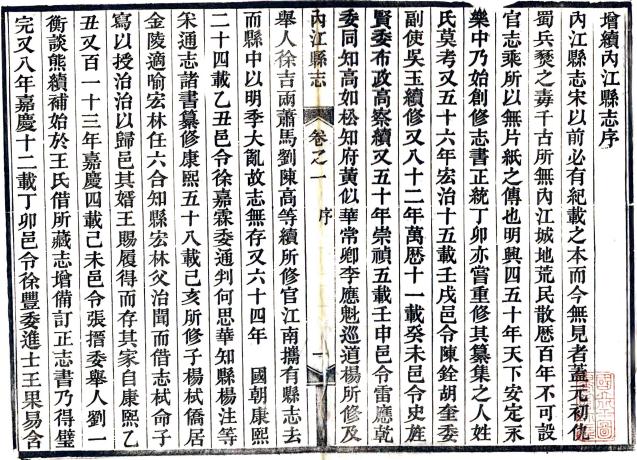 增續內江縣志序
內江縣志宋以前必有紀載之本而今無見者蓋元初仇
蜀兵燹之毒千古所無內江城地荒民散歷百年不可設
官志乘所以無片紙之傳也明興四五十年天下安定永
樂中乃始創修志書正統丁卯亦嘗重修其纂集之人姓
氏莫考又五十六年宏治十五載壬戌邑令陳銓胡奎委
副使吳玉續修又八十二年萬曆十一載癸未邑令史旌
賢委布政高察續又五十年崇禎五載壬申邑令雷應乾
委同知高如松知府黃似華常卿李應魁巡道楊所修及
內江縣志 卷之一 序 一
舉人徐吉雨蕭馬劉陳高等續所修官江南攜有縣志去
而縣中以明季大亂故志無存又六十四年 國朝康熙
二十四載乙丑邑令徐嘉霖委通判何思華知縣楊注等
采通志諸書纂修康熙五十八載己亥所修子楊栻僑居
金陵適喻宏林任六合知縣宏林父治聞而借志栻命子
寫以授治治以歸邑其婿王賜履得而存其家自康熙乙
丑又百一十三年嘉慶四載己未邑令張搢委舉人劉一
衡談熊續補始於王氏借所藏志增備訂正志書乃得璧
完又八年嘉慶十二載丁卯邑令徐豐委進士王果易含